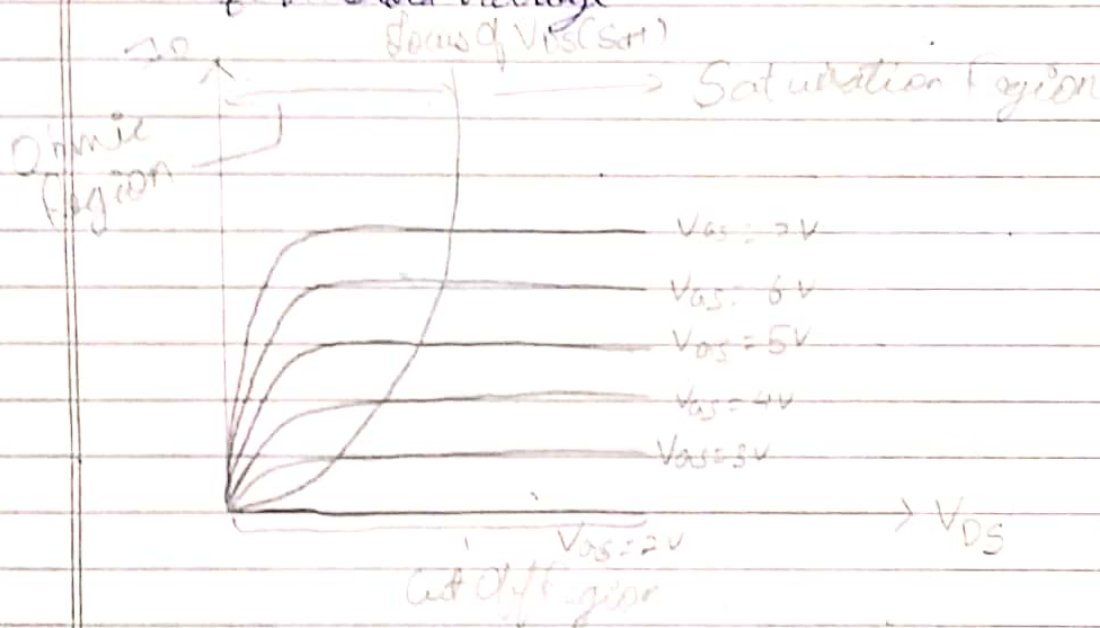 Locus of VDS(Sat)
ID
Saturation Region
Ohmic
Region
VGS = 7V
VGS = 6V
VGS = 5V
VGS = 4V
VGS = 3V
VDS
VGS = 2V
Cut Off Region